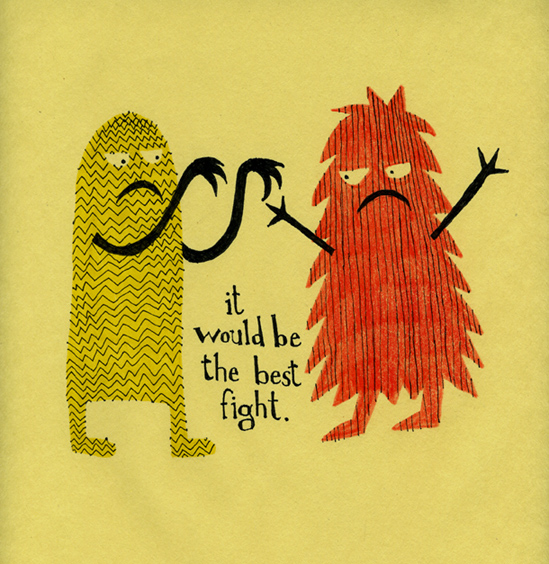 it
would be
the best
fight.